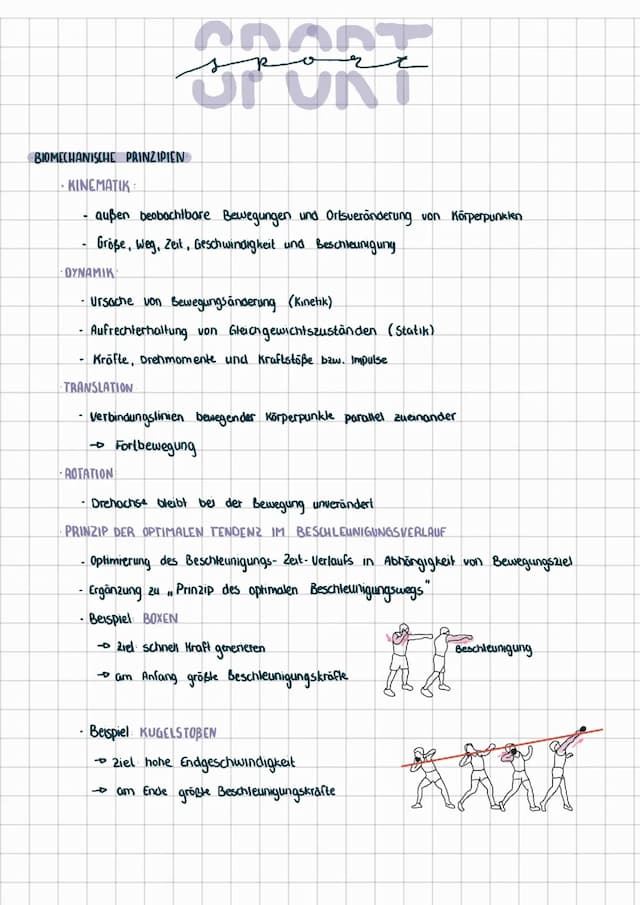 SPORT
sport
BIOMECHANISCHE PRINZIPIEN
· KINEMATIK:
- außen beobachtbare Bewegungen und Ortsveränderung von Körperpunkten
- Größe, Weg, Zeit, Geschwindigkeit und Beschleunigung
· DYNAMIK:
- Ursache von Bewegungsänderung (Kinetik)
- Aufrechterhaltung von Gleichgewichtszuständen (Statik)
- Kräfte, Drehmomente und Kraftstöße bzw. Impulse
· TRANSLATION
- Verbindungslinien bewegender Körperpunkte parallel zueinander
→ Fortbewegung
· ROTATION
- Drehachse bleibt bei der Bewegung unverändert
· PRINZIP DER OPTIMALEN TENDENZ IM BESCHLEUNIGUNGSVERLAUF
- Optimierung des Beschleunigungs-Zeit-Verlaufs in Abhängigkeit von Bewegungsziel
- Ergänzung zu „Prinzip des optimalen Beschleunigungswegs"
- Beispiel: BOXEN
→ Ziel: schnell Kraft generieren
Beschleunigung
→ am Anfang größte Beschleunigungskräfte
- Beispiel: KUGELSTOßEN
→ Ziel hohe Endgeschwindigkeit
→ am Ende größte Beschleunigungskräfte